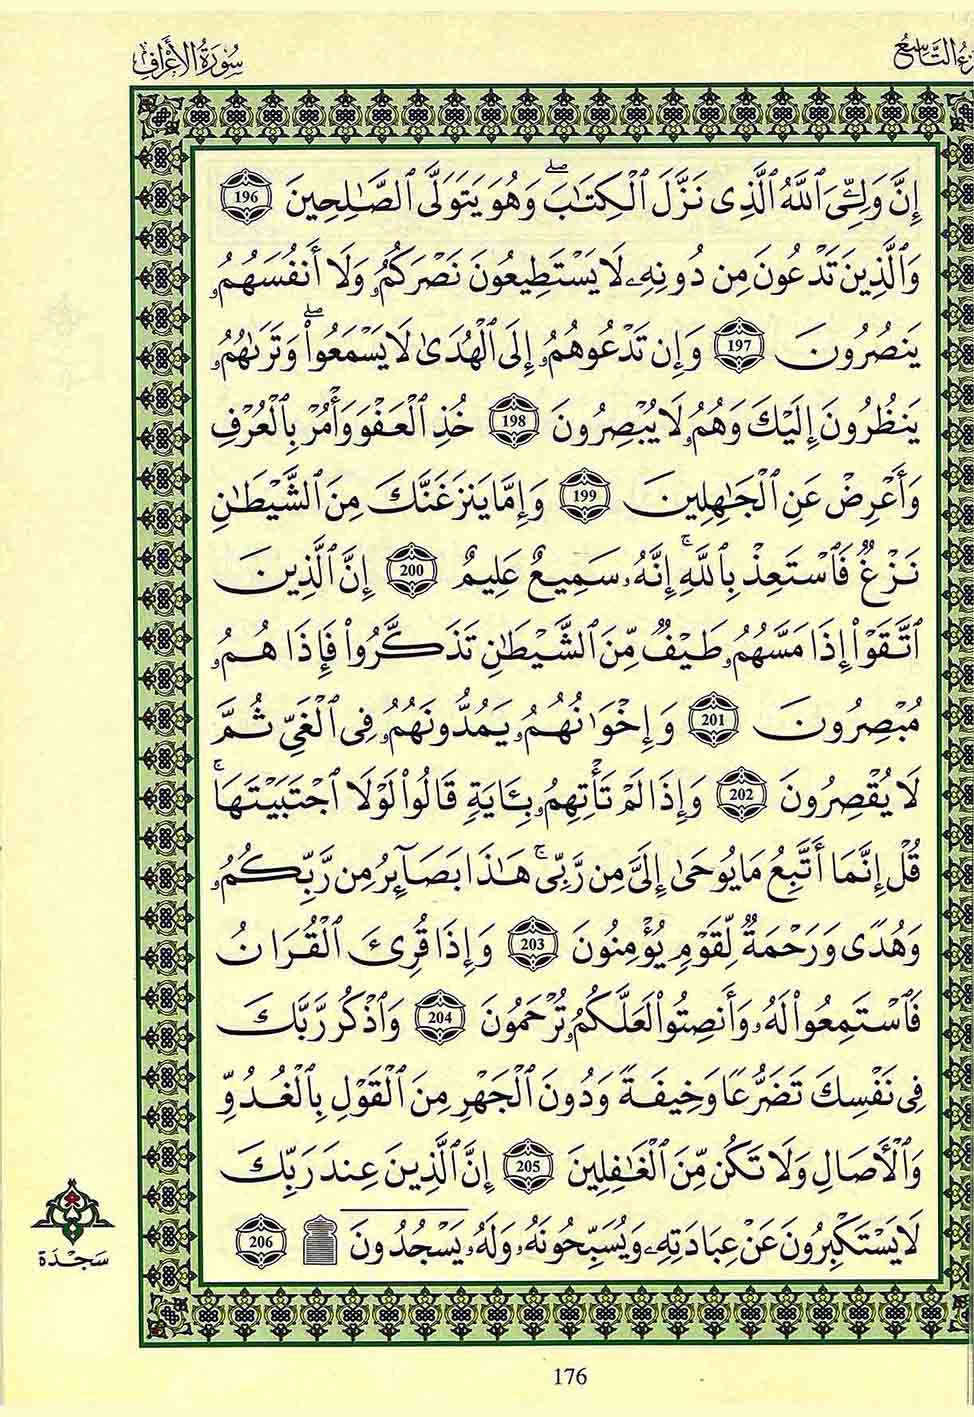 زء التاسع
سُورَةُ الأَعْرَافِ
إِنَّ وَلِـِّۧيَ ٱللَّهُ ٱلَّذِى نَزَّلَ ٱلْكِتَٰبَۖ وَهُوَ يَتَوَلَّى ٱلصَّٰلِحِينَ 196
وَٱلَّذِينَ تَدْعُونَ مِن دُونِهِۦ لَا يَسْتَطِيعُونَ نَصْرَكُمُۥ وَلَا أَنفُسَهُمُۥ
يَنصُرُونَ 197 وَإِن تَدْعُوهُمُۥ إِلَى ٱلْهُدَىٰ لَا يَسْمَعُوا۟ۖ وَتَرَىٰهُمُۥ
يَنظُرُونَ إِلَيْكَ وَهُمُۥ لَا يُبْصِرُونَ 198 خُذِ ٱلْعَفْوَ وَأْمُرْ بِٱلْعُرْفِ
وَأَعْرِضْ عَنِ ٱلْجَٰهِلِينَ 199 وَإِمَّا يَنزَغَنَّكَ مِنَ ٱلشَّيْطَٰنِ
نَزْغٌ فَٱسْتَعِذْ بِٱللَّهِۚ إِنَّهُۥ سَمِيعٌ عَلِيمٌ 200 إِنَّ ٱلَّذِينَ
ٱتَّقَوْا۟ إِذَا مَسَّهُمُۥ طَيْفٌ مِّنَ ٱلشَّيْطَٰنِ تَذَكَّرُوا۟ فَإِذَا هُمُۥ
مُبْصِرُونَ 201 وَإِخْوَٰنُهُمُۥ يَمُدُّونَهُمُۥ فِى ٱلْغَىِّ ثُمَّ
لَا يُقْصِرُونَ 202 وَإِذَا لَمْ تَأْتِهِمُۥ بِـَٔايَةٍ قَالُوا۟ لَوْلَا ٱجْتَبَيْتَهَاۚ
قُلْ إِنَّمَا أَتَّبِعُ مَا يُوحَىٰ إِلَىَّ مِن رَّبِّىۚ هَٰذَا بَصَآئِرُ مِن رَّبِّكُمُۥ
وَهُدًى وَرَحْمَةٌ لِّقَوْمٍ يُؤْمِنُونَ 203 وَإِذَا قُرِئَ ٱلْقُرَانُ
فَٱسْتَمِعُوا۟ لَهُۥ وَأَنصِتُوا۟ لَعَلَّكُمُۥ تُرْحَمُونَ 204 وَٱذْكُر رَّبَّكَ
فِى نَفْسِكَ تَضَرُّعًا وَخِيفَةً وَدُونَ ٱلْجَهْرِ مِنَ ٱلْقَوْلِ بِٱلْغُدُوِّ
وَٱلْأَصَالِ وَلَا تَكُن مِّنَ ٱلْغَٰفِلِينَ 205 إِنَّ ٱلَّذِينَ عِندَ رَبِّكَ
لَا يَسْتَكْبِرُونَ عَنْ عِبَادَتِهِۦ وَيُسَبِّحُونَهُۥ وَلَهُۥ يَسْجُدُونَ ۩ 206
سَجْدَة
176